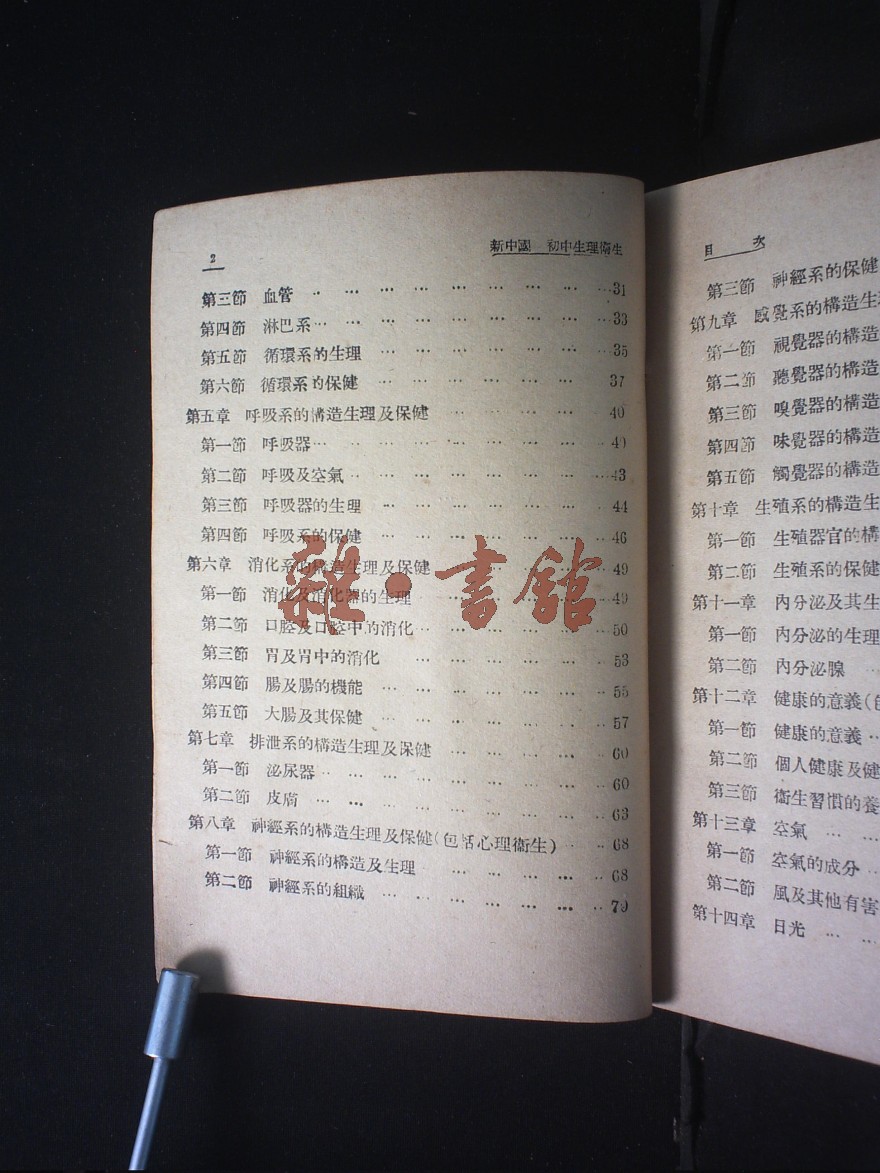 2
新中國 初中生理衞生
第三節 血管 … … … … … … … … 31
第四節 淋巴系 … … … … … … … … 33
第五節 循環系的生理 … … … … … … 35
第六節 循環系的保健 … … … … … … 37
第五章 呼吸系的構造生理及保健 … … … … 40
第一節 呼吸器 … … … … … … … … 40
第二節 呼吸及空氣 … … … … … … … 43
第三節 呼吸器的生理 … … … … … … 44
第四節 呼吸系的保健 … … … … … … 46
第六章 消化系的構造生理及保健 … … … … 49
第一節 消化及消化器的生理 … … … … … 49
第二節 口腔及口腔中的消化 … … … … … 50
第三節 胃及胃中的消化 … … … … … 53
第四節 腸及腸的機能 … … … … … … 55
第五節 大腸及其保健 … … … … … … 57
第七章 排泄系的構造生理及保健 … … … … 60
第一節 泌尿器 … … … … … … … … 60
第二節 皮膚 … … … … … … … 63
第八章 神經系的構造生理及保健(包括心理衞生) … 68
第一節 神經系的構造及生理 … … … … … 68
第二節 神經系的組織 … … … … … … 79
雜·書館
目 次
第三節 神經系的保健
第九章 感覺系的構造生理
第一節 視覺器的構造
第二節 聽覺器的構造
第三節 嗅覺器的構造
第四節 味覺器的構造
第五節 觸覺器的構造
第十章 生殖系的構造生
第一節 生殖器官的構
第二節 生殖系的保健
第十一章 內分泌及其生
第一節 內分泌的生理
第二節 內分泌腺 …
第十二章 健康的意義(包
第一節 健康的意義 …
第二節 個人健康及健
第三節 衞生習慣的養
第十三章 空氣 … …
第一節 空氣的成分 …
第二節 風及其他有害
第十四章 日光 … …